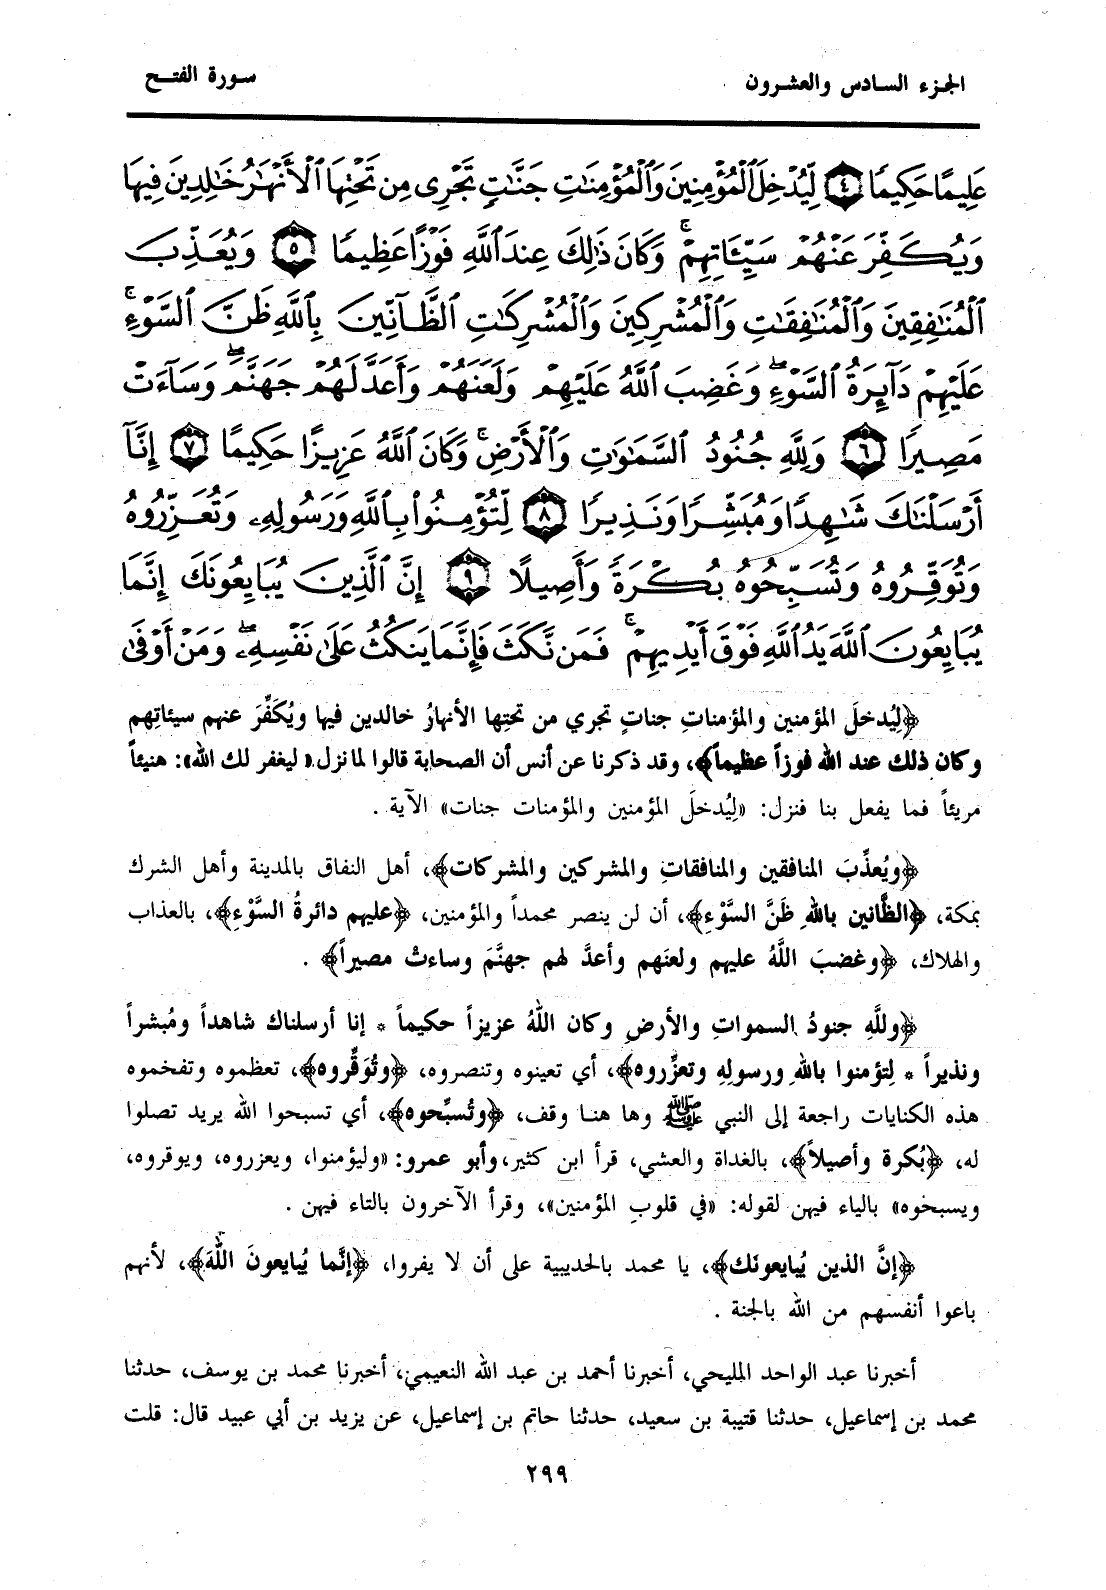 الجزء السادس والعشرون
سورة الفتح
عَلِيمًا حَكِيمًا ٤ لِّيُدْخِلَ ٱلْمُؤْمِنِينَ وَٱلْمُؤْمِنَٰتِ جَنَّٰتٍ تَجْرِى مِن تَحْتِهَا ٱلْأَنْهَٰرُ خَٰلِدِينَ فِيهَا
وَيُكَفِّرَ عَنْهُمْ سَيِّئَاتِهِمْ ۚ وَكَانَ ذَٰلِكَ عِندَ ٱللَّهِ فَوْزًا عَظِيمًا ٥ وَيُعَذِّبَ
ٱلْمُنَٰفِقِينَ وَٱلْمُنَٰفِقَٰتِ وَٱلْمُشْرِكِينَ وَٱلْمُشْرِكَٰتِ ٱلظَّآنِّينَ بِٱللَّهِ ظَنَّ ٱلسَّوْءِ ۚ
عَلَيْهِمْ دَآئِرَةُ ٱلسَّوْءِ ۖ وَغَضِبَ ٱللَّهُ عَلَيْهِمْ وَلَعَنَهُمْ وَأَعَدَّ لَهُمْ جَهَنَّمَ ۖ وَسَآءَتْ
مَصِيرًا ٦ وَلِلَّهِ جُنُودُ ٱلسَّمَٰوَٰتِ وَٱلْأَرْضِ ۚ وَكَانَ ٱللَّهُ عَزِيزًا حَكِيمًا ٧ إِنَّآ
أَرْسَلْنَٰكَ شَٰهِدًا وَمُبَشِّرًا وَنَذِيرًا ٨ لِّتُؤْمِنُوا۟ بِٱللَّهِ وَرَسُولِهِۦ وَتُعَزِّرُوهُ
وَتُوَقِّرُوهُ وَتُسَبِّحُوهُ بُكْرَةً وَأَصِيلًا ٩ إِنَّ ٱلَّذِينَ يُبَايِعُونَكَ إِنَّمَا
يُبَايِعُونَ ٱللَّهَ يَدُ ٱللَّهِ فَوْقَ أَيْدِيهِمْ ۚ فَمَن نَّكَثَ فَإِنَّمَا يَنكُثُ عَلَىٰ نَفْسِهِۦ ۖ وَمَنْ أَوْفَىٰ
﴿لِيُدخلَ المؤمنين والمؤمناتِ جناتٍ تجري من تحتِها الأنهارُ خالدين فيها ويُكَفِّرَ عنهم سيئاتِهم
وكان ذلك عند الله فوزاً عظيماً﴾، وقد ذكرنا عن أنس أن الصحابة قالوا لما نزل « ليغفر لك الله»: هنيئاً
مريئاً فما يفعل بنا فنزل: «لِيُدخلَ المؤمنين والمؤمنات جنات» الآية .
﴿ويُعذِّبَ المنافقين والمنافقاتِ والمشركين والمشركات﴾، أهل النفاق بالمدينة وأهل الشرك
بمكة، ﴿الظَّانين باللهِ ظَنَّ السَّوْءِ﴾، أن لن ينصر محمداً والمؤمنين، ﴿عليهم دائرةُ السَّوْءِ﴾، بالعذاب
والهلاك، ﴿وغضبَ اللَّهُ عليهم ولعنَهم وأعدَّ لهم جهنَّمَ وساءتْ مصيراً﴾ .
﴿وللَّهِ جنودُ السمواتِ والأرضِ وكان اللهُ عزيزاً حكيماً * إنا أرسلناك شاهداً ومُبشراً
ونذيراً * لِتؤمنوا باللهِ ورسولِهِ وتعزِّروه﴾، أي تعينوه وتنصروه، ﴿وتُوَقِّروه﴾، تعظموه وتفخموه
هذه الكنايات راجعة إلى النبي ﷺ وها هنا وقف، ﴿وتُسبِّحوه﴾، أي تسبحوا الله يريد تصلوا
له، ﴿بُكرة وأصيلاً﴾، بالغداة والعشي، قرأ ابن كثير، وأبو عمرو: «وليؤمنوا، ويعزروه، ويوقروه،
ويسبحوه» بالياء فيهن لقوله: «في قلوبِ المؤمنين»، وقرأ الآخرون بالتاء فيهن .
﴿إنَّ الذين يُبايعونَك﴾، يا محمد بالحديبية على أن لا يفروا، ﴿إنَّما يُبايعونَ اللَّهَ﴾، لأنهم
باعوا أنفسهم من الله بالجنة .
أخبرنا عبد الواحد المليحي، أخبرنا أحمد بن عبد الله النعيمي، أخبرنا محمد بن يوسف، حدثنا
محمد بن إسماعيل، حدثنا قتيبة بن سعيد، حدثنا حاتم بن إسماعيل، عن يزيد بن أبي عبيد قال: قلت
٢٩٩